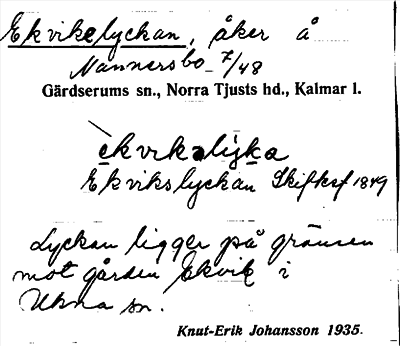 Ekvikelyckan, åker å
Nannersbo 7/48
Gärdserums sn., Norra Tjusts hd., Kalmar l.
ekvikəlyka
Ekvikslyckan Skifksf 1849
Lyckan ligger på gränsen
mot gården Ekvik i
Ukna sn.
Knut-Erik Johansson 1935.